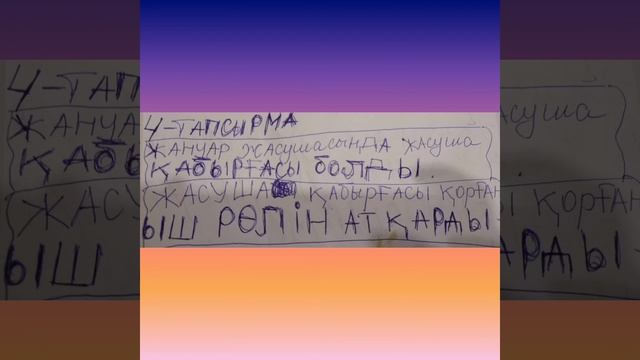 4-ТАПСЫРМА
ЖАНУАР ЖАСУШАСЫНДА ЖАСУША
ҚАБЫРҒАСЫ БОЛДЫ.
ЖАСУША ҚАБЫРҒАСЫ ҚОРҒАН
ЫШ РӨЛІН АТҚАРДЫ